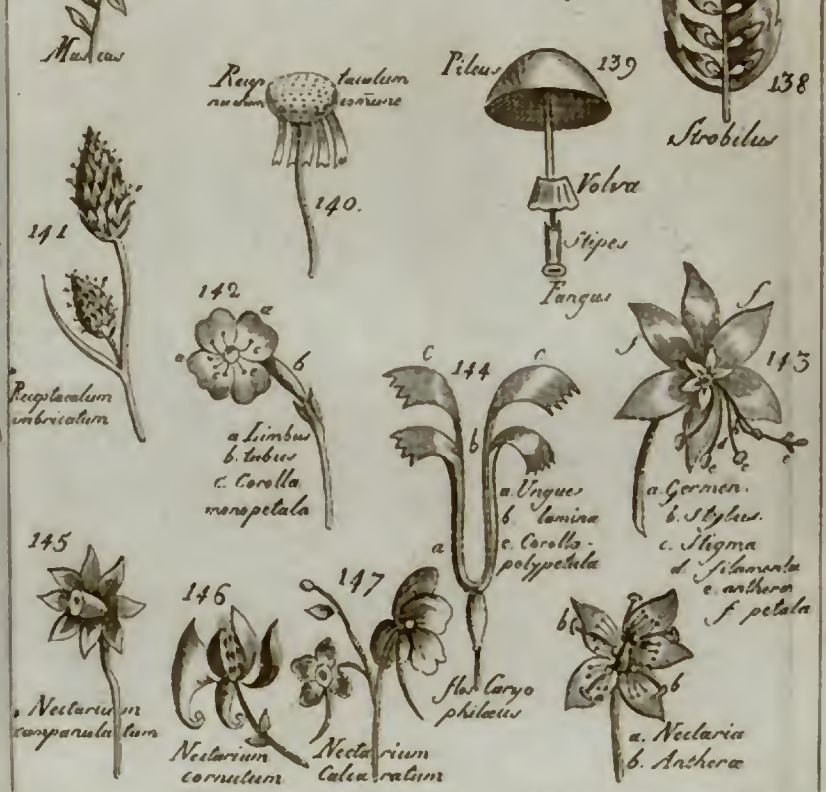 Muscus
138
Strobilus
Recep taculum
nudum comune
140.
Pileus 139
Volva
Stipes
Fungus
141
Receptaculum
imbricatum
142
a
a b
c
c
a Limbus
b. tubus
c. Corolla
monopetala
C 144 C
b
a
a. Ungues
b. lamina
c. Corolla-
polypetala
flos Caryo
philæus
f
f 143
e
e e
a. Germen.
b. Stylus.
c. Stigma
d. filamenta
e. anthera
f petala
145
Nectarium
campanulatum
146
Nectarium
cornutum
147
Nectarium
Calcaratum
b
b
a. Nectaria
b. Antheræ